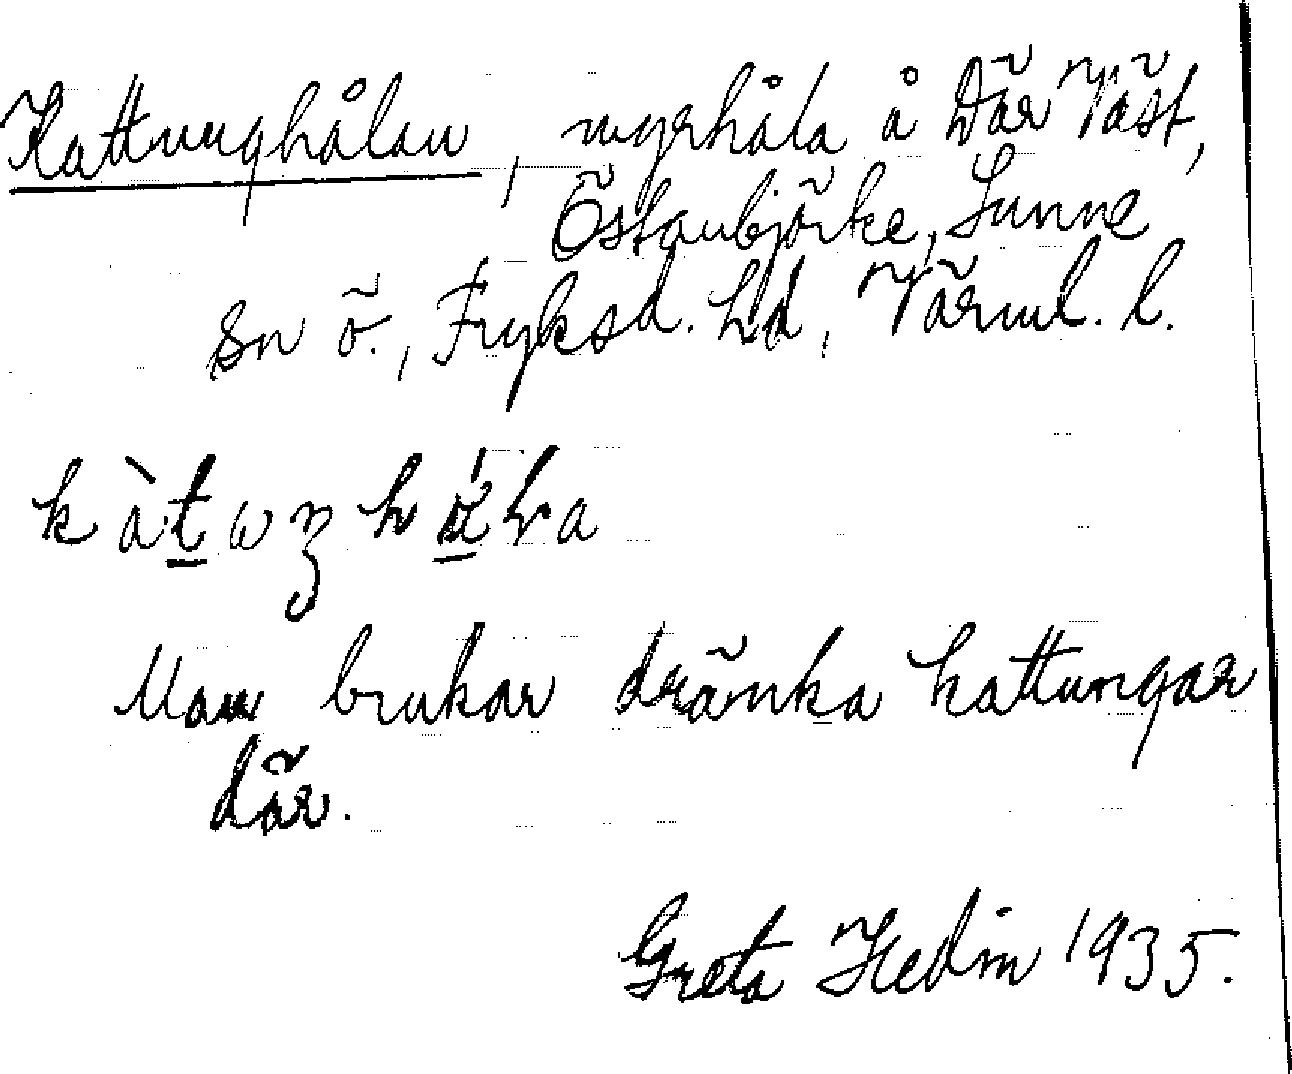 Kattunghålan, myrhåla å Där Väst,
Östanbjörke, Sunne
sn ö., Fryksd. hd, Värml. l.
Man brukar dränka kattungar
där.
Greta Hedin 1935.